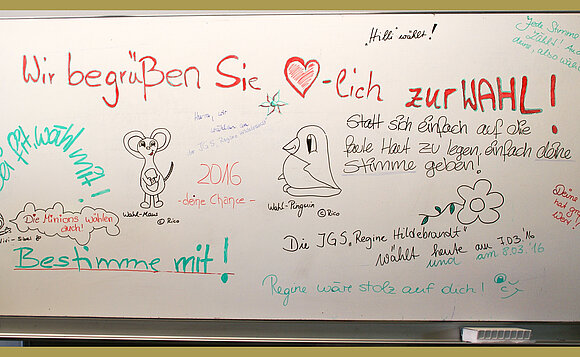 „Hilli“ wählt!
Jede Stimme
zählt! Auch
deine, also wähl
Wir begrüßen Sie -lich zur WAHL!
Hurra, wir
wählen an
der JGS Regine Hildebrandt
Statt sich einfach auf die
faule Haut zu legen, einfach deine
STIMME geben!
fit, wähl mit!
2016
-deine Chance-
Wahl-Maus
©Rico
Wahl-Pinguin
©Rico
Deine
hat
Wert.
Die Minions wählen
auch!
Die JGS „Regine Hildebrandt“
wählt heute am 7.03.'16
und am 8.03.'16
Bestimme mit!
Regine wäre stolz auf dich!